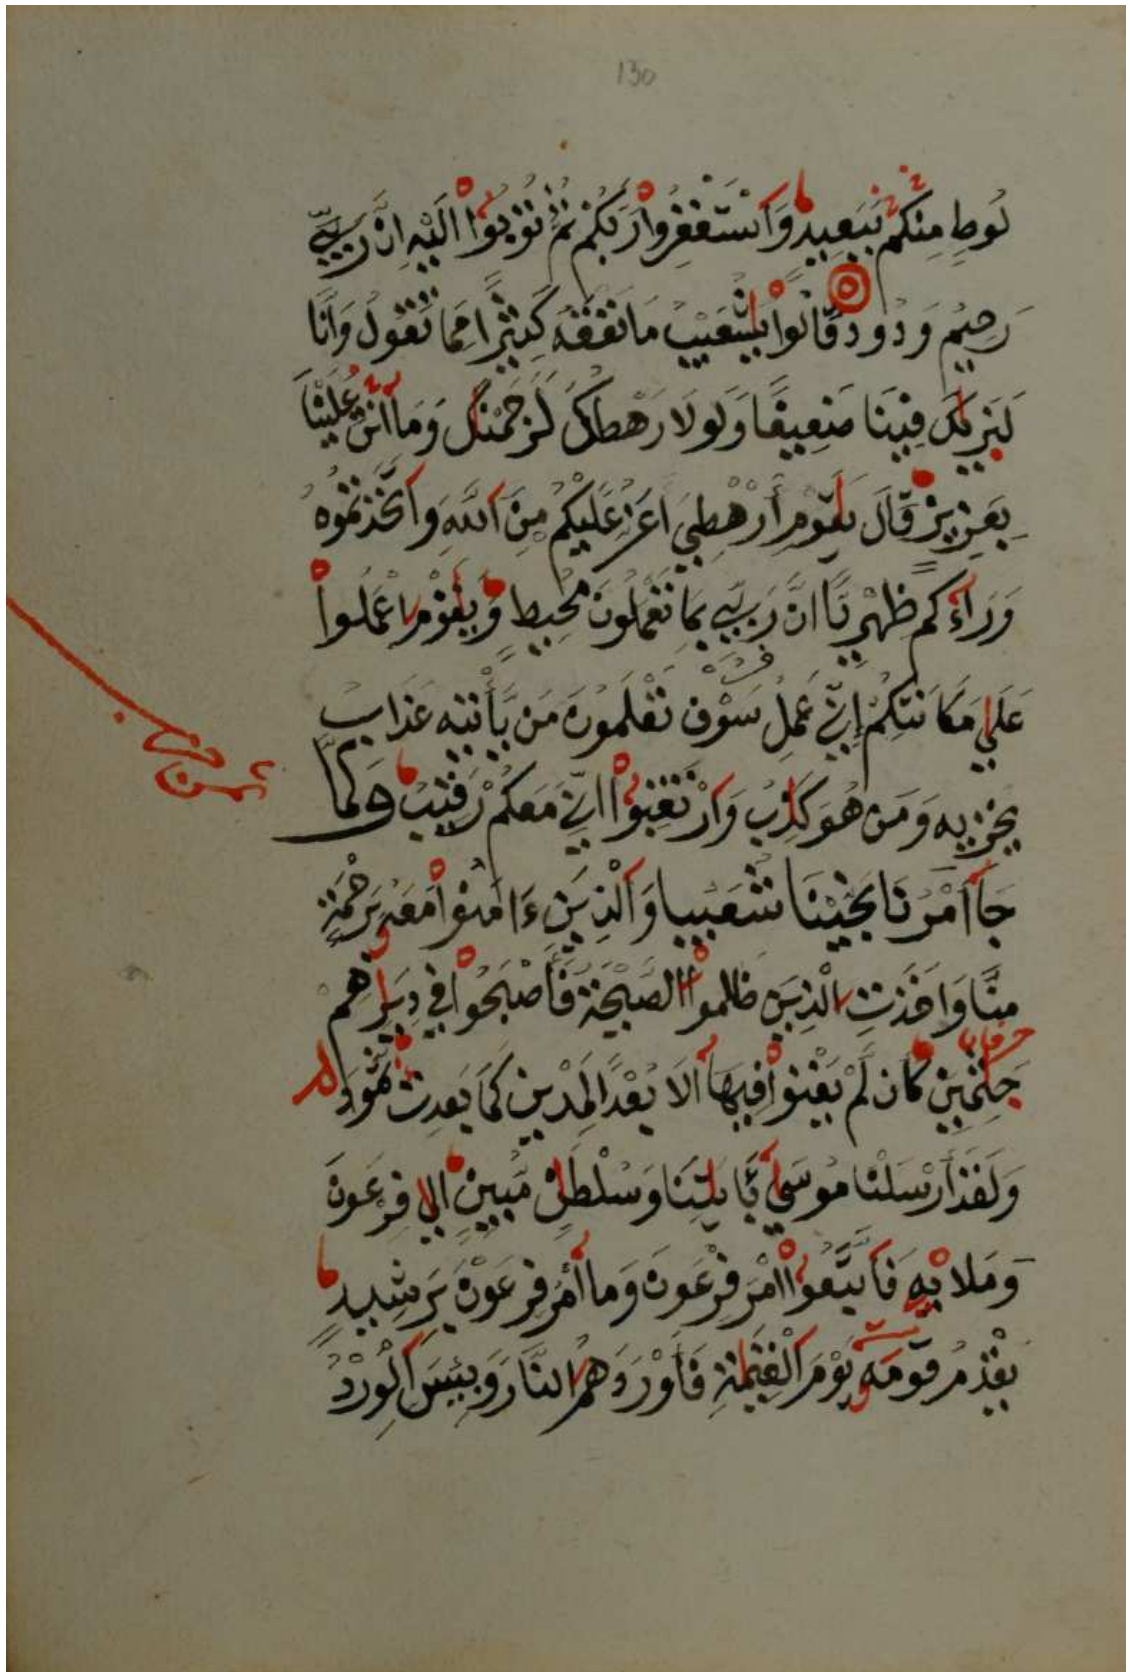 130
لُوطٍ مِنكُم بِبَعِيدٍ وَاسْتَغْفِرُوا رَبَّكُمْ ثُمَّ تُوبُوا إِلَيْهِ إِنَّ رَبِّي
رَحِيمٌ وَدُودٌ قَالُوا يَشُعَيْبُ مَا نَفْقَهُ كَثِيرًا مِمَّا تَقُولُ وَإِنَّا
لَنَرَىكَ فِينَا ضَعِيفًا وَلَوْلَا رَهْطُكَ لَرَجَمْنَكَ وَمَا أَنتَ عَلَيْنَا
بِعَزِيزٍ قَالَ يَقَوْمِ أَرَهْطِي أَعَزُّ عَلَيْكُم مِنَ اللَّهِ وَاتَّخَذْتُمُوهُ
وَرَاءَكُمْ ظِهْرِيًّا إِنَّ رَبِّي بِمَا تَعْمَلُونَ مُحِيطٌ وَيَقَوْمِ اعْمَلُوا
عَلَى مَكَانَتِكُمْ إِنِّي عَمِلٌ سَوْفَ تَعْلَمُونَ مَن يَّأْتِيهِ عَذَابٌ
يُخْزِيهِ وَمَنْ هُوَ كَذِبٌ وَارْتَقِبُوا إِنِّي مَعَكُمْ رَقِيبٌ وَلَمَّا
ثمن
جَاءَ أَمْرُنَا نَجَّيْنَا شُعَيْبًا وَالَّذِينَ ءَامَنُوا مَعَهُ بِرَحْمَةٍ
مِنَّا وَأَخَذَتِ الَّذِينَ ظَلَمُوا الصَّيْحَةُ فَأَصْبَحُوا فِي دِيَرِهِمْ
جَثِمِينَ كَأَن لَّمْ يَغْنَوْا فِيهَا أَلَا بُعْدًا لِمَدْيَنَ كَمَا بَعِدَتْ ثَمُودُ
وَلَقَدْ أَرْسَلْنَا مُوسَى بِـَٔايَتِنَا وَسُلْطَنٍ مُّبِينٍ إِلَى فِرْعَوْنَ
وَمَلَإِيهِ فَاتَّبَعُوا أَمْرَ فِرْعَوْنَ وَمَا أَمْرُ فِرْعَوْنَ بِرَشِيدٍ
يَقْدُمُ قَوْمَهُ يَوْمَ الْقِيَمَةِ فَأَوْرَدَهُمُ النَّارَ وَبِئْسَ الْوِرْدُ